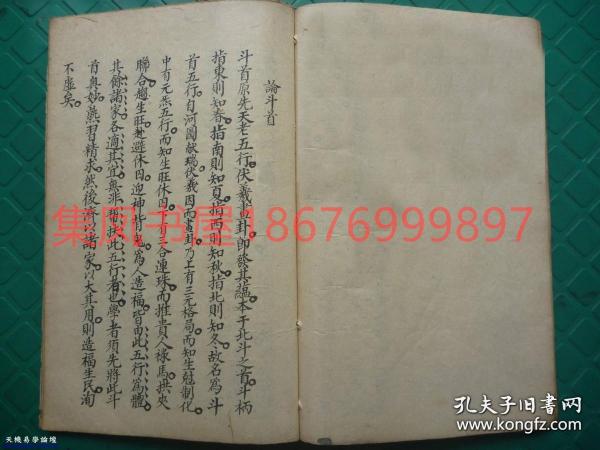 論斗首
斗首原先天老五行伏羲畫卦即發其蘊本于北斗之首斗柄
指東則知春指南則知夏指西則知秋指北則知冬故名為斗
首五行自河圖献瑞伏羲因而畫卦乃上有三元格局而知生尅制化
中有元炁五行而知生旺休囚下有三合連珠而推貴人祿馬拱夾
聯合趨生旺避休囚迎神背鬼為人造福皆由此五行為體
其餘諸家各適其宜無非扶此五行者也學者須先將此斗
首奥妙熟習精求然後濟以諸家以大其用則造福生民洵
不虛矣
集风书屋18676999897
孔夫子旧书网
www.kongfz.com
天機易學論壇